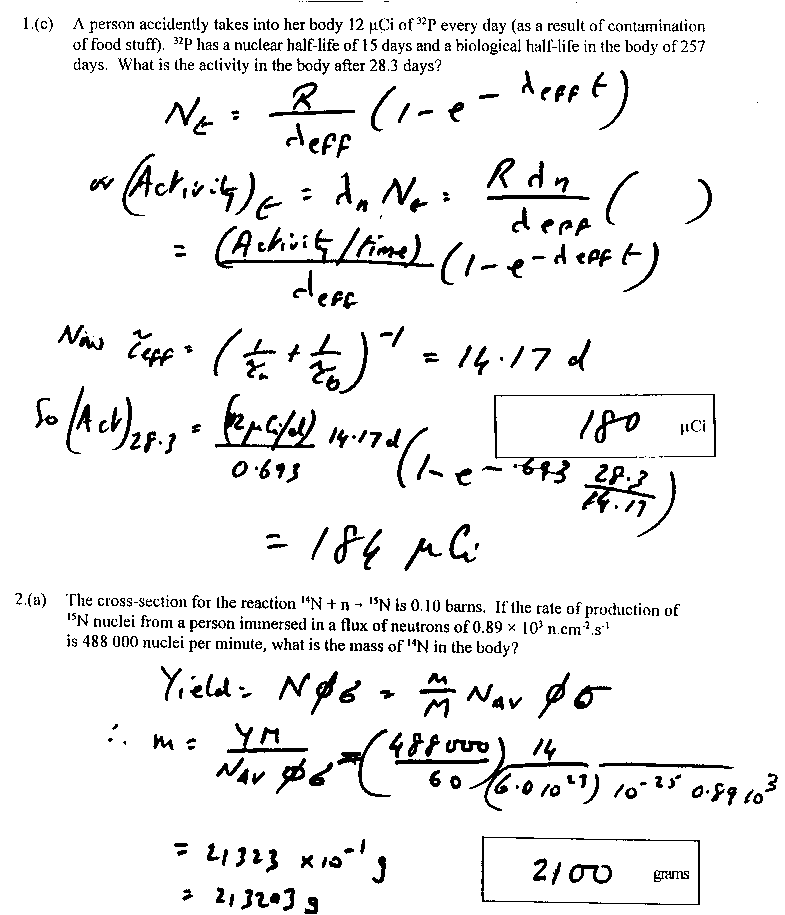 1.(c) A person accidently takes into her body 12 μCi of ³²P every day (as a result of contamination
of food stuff). ³²P has a nuclear half-life of 15 days and a biological half-life in the body of 257
days. What is the activity in the body after 28.3 days?
N_t = R/λ_eff (1 - e^-λ_eff t)
or (Activity)_t = λ_n N_t = R λ_n/λ_eff ( )
= (Activity/time)/λ_eff (1 - e^-λ_eff t)
Now τ_eff = (1/τ_n + 1/τ_b)^-1 = 14.17 d
So (Act)_28.3 = (12 μCi/d) 14.17d/0.693 (1 - e^-.693 28.3/14.17)
180 μCi
= 184 μCi
2.(a) The cross-section for the reaction ¹⁴N + n - ¹⁵N is 0.10 barns. If the rate of production of
¹⁵N nuclei from a person immersed in a flux of neutrons of 0.89 × 10³ n.cm⁻².s⁻¹
is 488 000 nuclei per minute, what is the mass of ¹⁴N in the body?
Yield = Nφσ = m/M N_AV φσ
∴ m = YM/N_AV φσ = (488000/60) 14/(6.0 10²³) 10⁻²⁵ 0.89 10³
= 21323 × 10⁻¹ g
= 2132.3 g
2100 grams